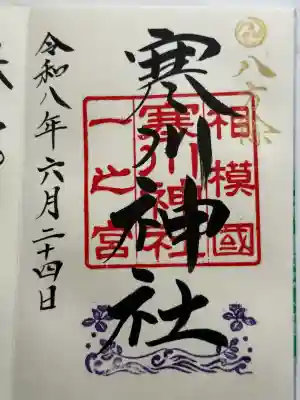 八方除
寒川神社
相模國
寒川神社
一之宮
令和八年六月二十四日